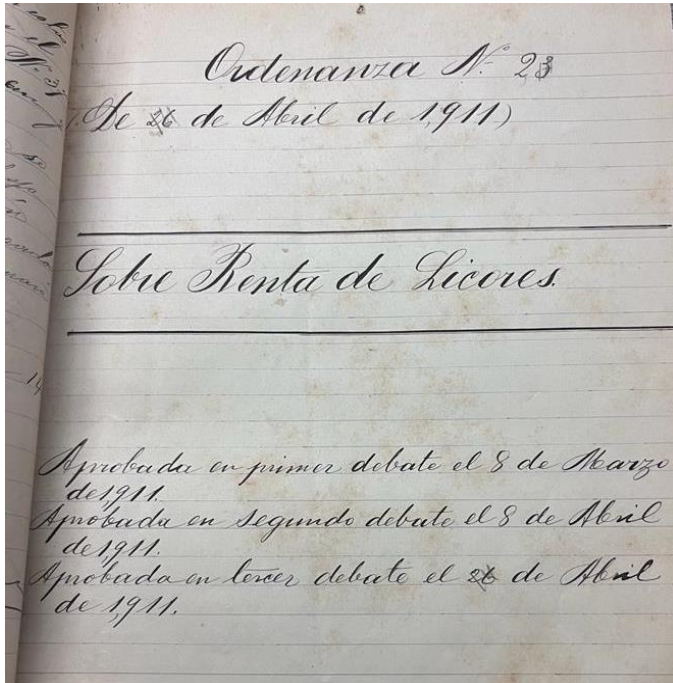 Ordenanza N. 23
(De 26 de Abril de 1,911)
Sobre Renta de Licores.
Aprobada en primer debate el 8 de Marzo
de 1,911.
Aprobada en segundo debate el 8 de Abril
de 1,911.
Aprobada en tercer debate el 26 de Abril
de 1,911.